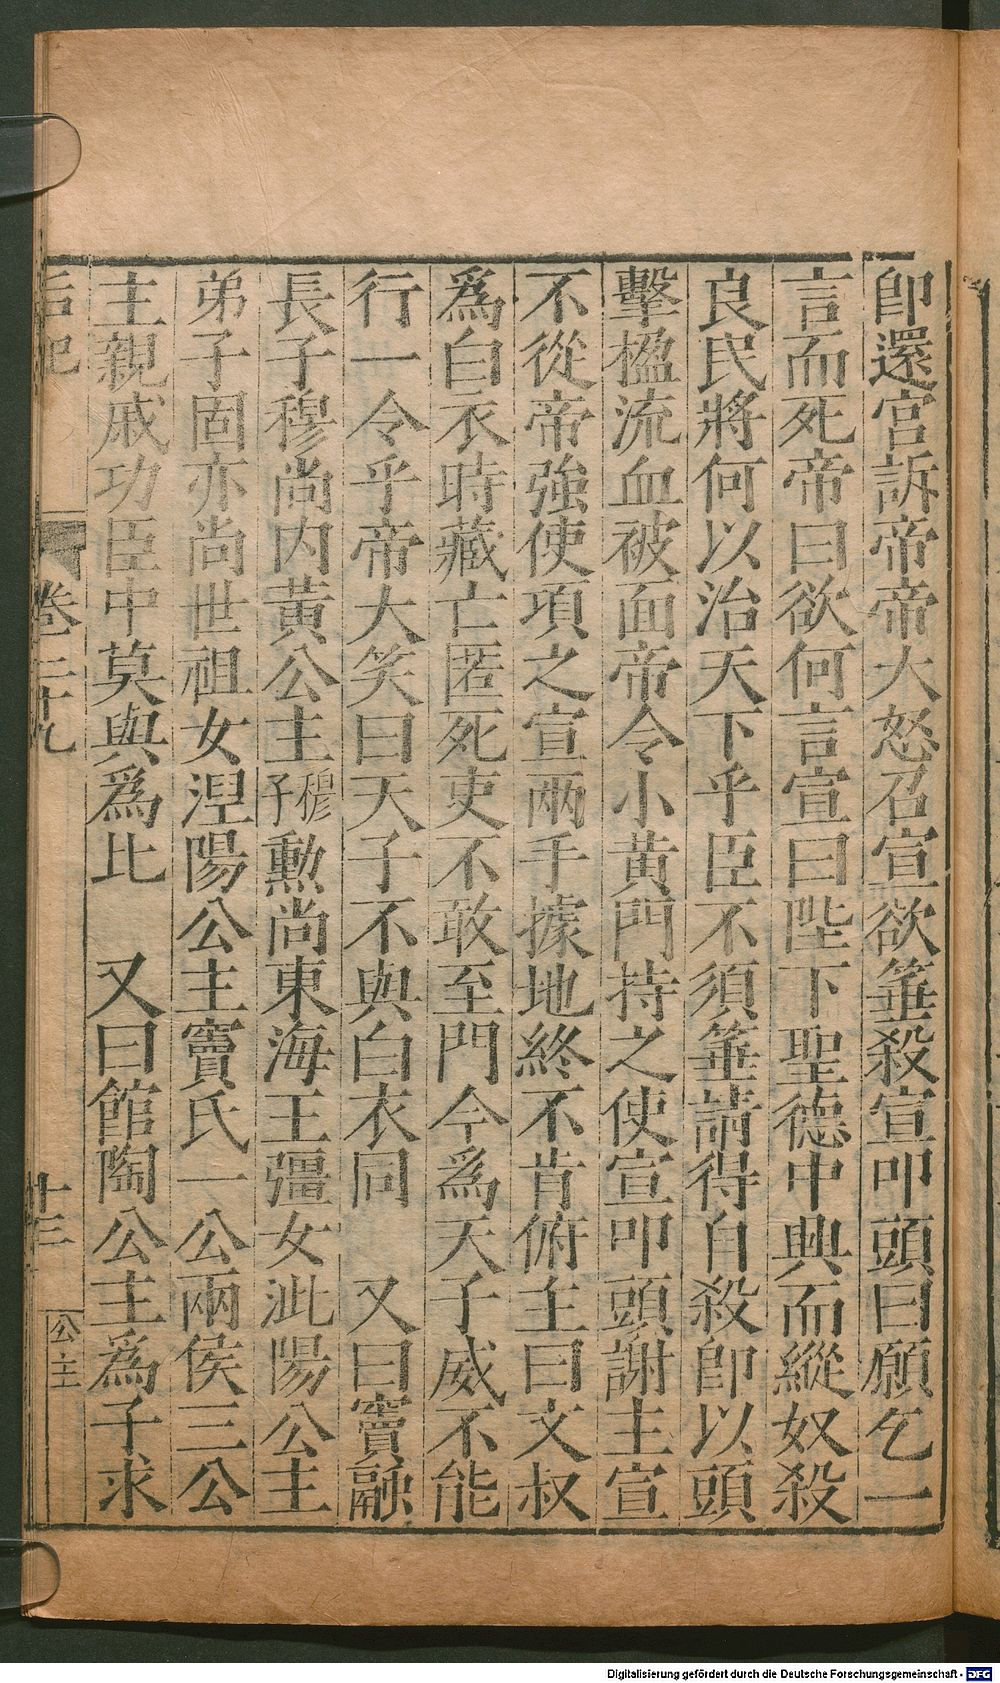 卽還宫訴帝帝大怒召宣欲箠殺宣叩頭曰願乞一
言而死帝曰欲何言宣曰陛下聖德中興而縱奴殺
良民將何以治天下乎臣不須箠請得自殺卽以頭
擊楹流血被面帝令小黄門持之使宣叩頭謝主宣
不從帝強使項之宣兩手據地終不肯俯主曰文叔
爲白衣時藏亡匿死吏不敢至門今爲天子威不能
行一令乎帝大笑曰天子不與白衣同　又曰竇融
長子穆尚内黄公主穆子勲尚東海王彊女沘陽公主
弟子固亦尚世祖女涅陽公主竇氏一公兩侯三公
主親戚功臣中莫與爲比　又曰館陶公主爲子求
卷二十九
十三
公主
Digitalisierung gefördert durch die Deutsche Forschungsgemeinschaft - DFG